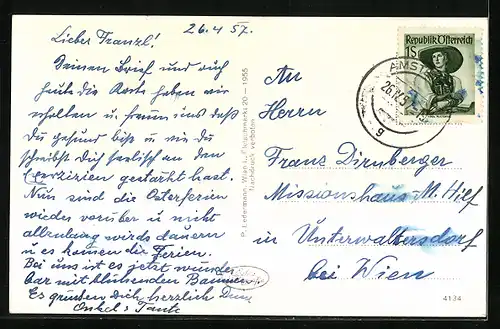 26.4.57.
Lieber Franzl!
Deinen Brief und auch
heute die Karte haben wir
erhalten u. freun uns daß
Du gesund bist u. wie Du
schreibst Dich seelisch an den
Exerzizien gestärkt hast.
Nun sind die Osterferien
wieder vorüber u. nicht
allzulang wirds dauern
u es kommen die Ferien.
Bei uns ist es jetzt wunder
bar mit blühenden Bäumen.
Es grüßen Dich herzlich Deine
Onkel u Tante
P. Ledermann, Wien I., Fleischmarkt 20 — 1955
Nachdruck verboten
Republik Österreich
1S
AMST
26.IV.57
g
An
Herrn
Franz Dirnberger
Missionshaus M. Hief
in Unterwaltersdorf
bei Wien
4134